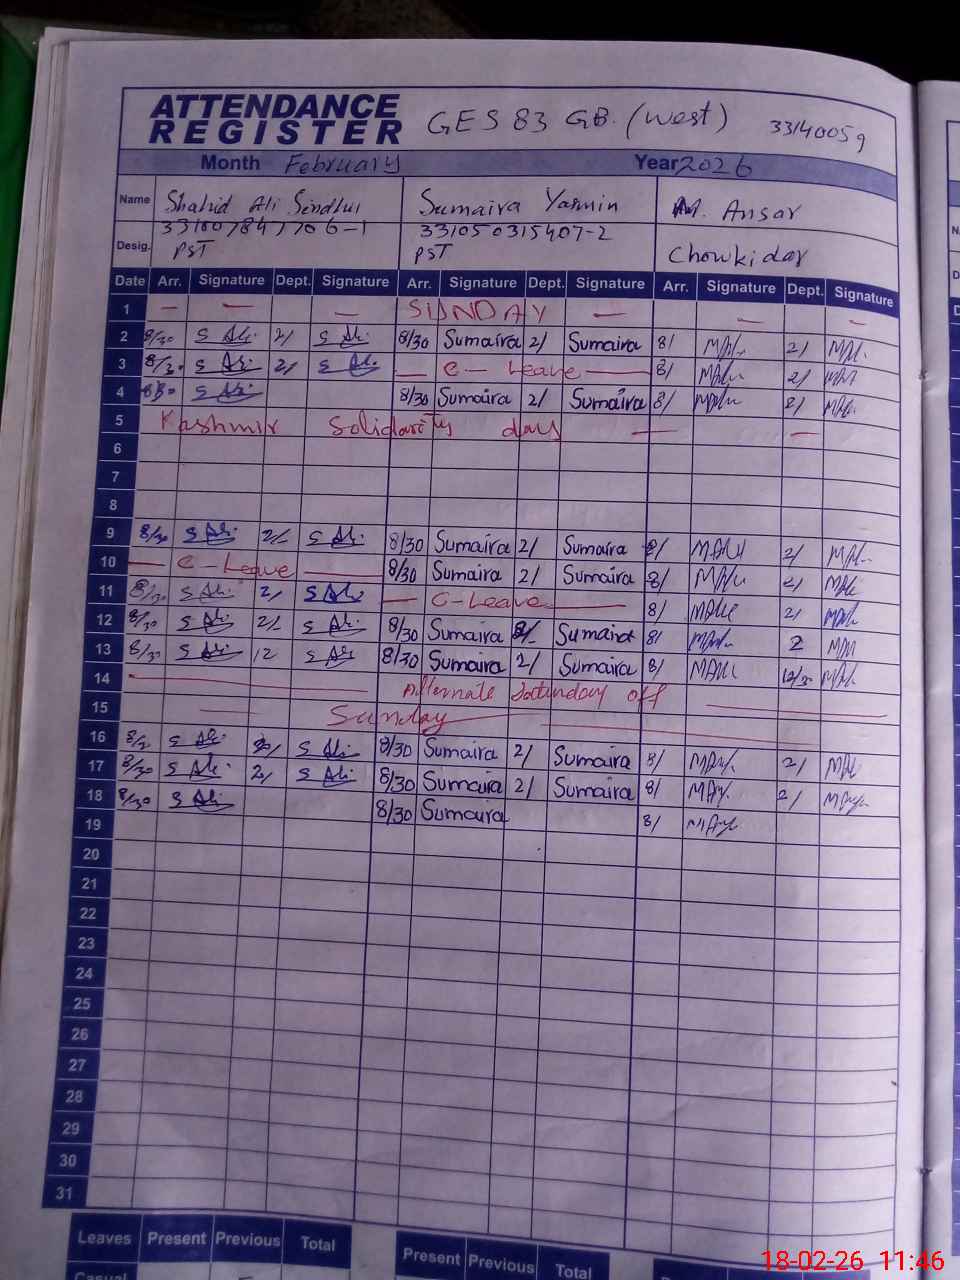 ATTENDANCE REGISTER GES 83 GB. (West) 33140059
Month February Year 2026
Name Shahid Ali Sindhu Sumaira Yasmin M. Ansar
331050315407-2
Desig. PST PST Chowkidar
Date Arr. Signature Dept. Signature Arr. Signature Dept. Signature Arr. Signature Dept. Signature
1 — — — SUNDAY — — —
2 8/30 S Ali 2/ S Ali 8/30 Sumaira 2/ Sumaira 8/ 2/
3 8/30 S Ali 2/ S Ali — C - Leave — 8/ 2/
4 8/30 S Ali 8/30 Sumaira 2/ Sumaira 8/ 2/
5 Kashmir Solidarity day — —
6
7
8
9 8/30 S Ali 2/ S Ali 8/30 Sumaira 2/ Sumaira 8/ 2/
10 — C - Leave — 8/30 Sumaira 2/ Sumaira 8/ 2/
11 8/30 S Ali 2/ S Ali — C - Leave — 8/ 2/
12 8/30 S Ali 2/ S Ali 8/30 Sumaira 2/ Sumaira 8/ 2
13 8/30 S Ali 12 S Ali 8/30 Sumaira 2/ Sumaira 8/ 12/30
14 — Alternate Saturday off —
15 — Sunday —
16 8/30 S Ali 2/ S Ali 8/30 Sumaira 2/ Sumaira 8/ 2/
17 8/30 S Ali 2/ S Ali 8/30 Sumaira 2/ Sumaira 8/ 2/
18 8/30 S Ali 8/30 Sumaira 8/
19
20
21
22
23
24
25
26
27
28
29
30
31
Leaves Present Previous Total Present Previous Total
Casual
18-02-26 11:46